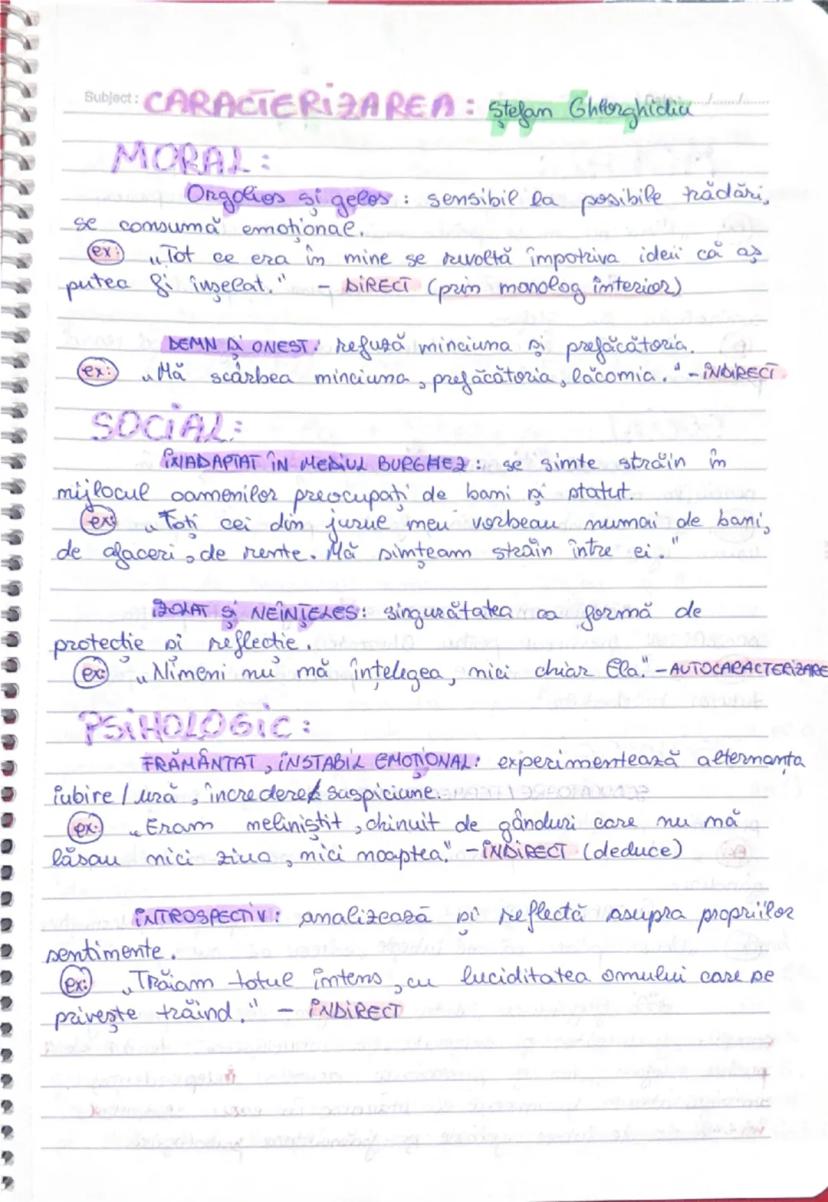 Subject: CARACTERIZAREA: Ștefan Gheorghidiu
MORAL:
Orgolios și gelos: sensibil la posibile trădări,
se consumă emoțional.
ex: „Tot ce era în mine se revoltă împotriva ideii că aș
putea fi înșelat." - DIRECT (prin monolog interior)
DEMN ȘI ONEST: refuză minciuna și prefăcătoria.
ex: „Mă scârbea minciuna, prefăcătoria, lăcomia." - INDIRECT
SOCIAL:
INADAPTAT ÎN MEDIUL BURGHEZ: se simte străin în
mijlocul oamenilor preocupați de bani și statut.
ex: „Toți cei din jurul meu vorbeau numai de bani,
de afaceri, de rente. Mă simțeam străin între ei."
IZOLAT ȘI NEÎNȚELES: singurătatea ca formă de
protecție și reflecție.
ex: „Nimeni nu mă înțelegea, nici chiar Ela." - AUTOCARACTERIZARE
PSIHOLOGIC:
FRĂMÂNTAT, INSTABIL EMOȚIONAL: experimentează alternanța
iubire / ură, încredere/ suspiciune.
ex: „Eram neliniștit, chinuit de gânduri care nu mă
lăsau nici ziua, nici noaptea." - INDIRECT (deduce)
INTROSPECTIV: analizează și reflectă asupra propriilor
sentimente.
ex: „Trăiam totul intens, cu luciditatea omului care se
privește trăind." - INDIRECT